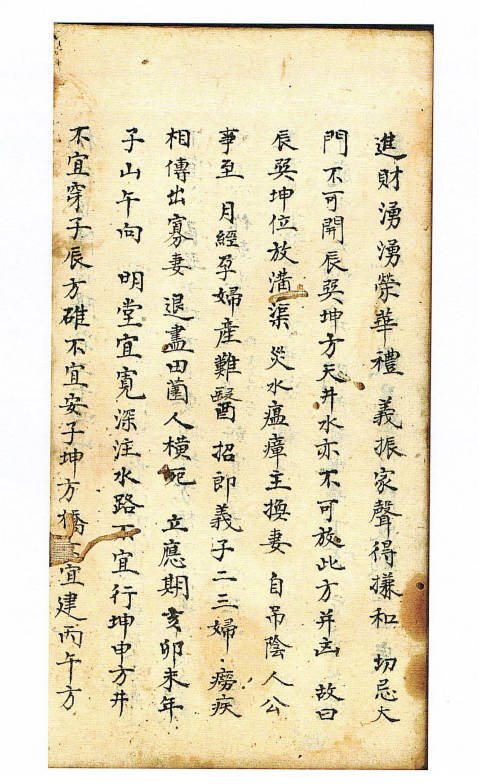 進財湧湧榮華禮 義振家聲得撡和 切忌大
門不可開辰巽坤方天井水亦不可放此方并凼 故曰
辰巽坤位放溝渠 災水瘟瘴主換妻 自吊陰人公
事至 月經孕婦產難醫 招郎義子二三婦 癆疾
相傳出寡妻 退盡田園人橫死 立應期亥卯未年
子山午向 明堂宜寬深注水路不宜行坤申方井
不宜穿子辰方碓不宜安子坤方橋不宜建丙午方